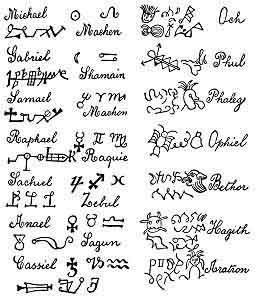 Michael ☉ ♌ Och
Gabriel ☾ ♋ Phul
Shamain
Samael ♂ ♈ ♏ Phaleg
Raphael ☿ ♊ ♍ Ophiel
Raquie
Sachiel ♃ ♐ ♓ Bethor
Zebul
Anael ♀ ♉ ♎ Hagith
Sagun
Cassiel ♄ ♑ ♒ Aratron